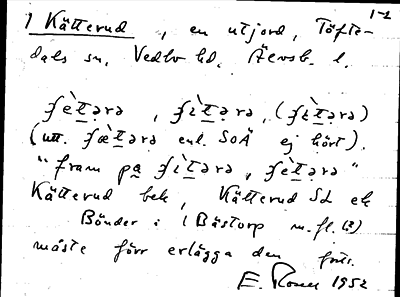 1-2
1 Kätterud, en utjord, Töfte-
dals sn, Vedbo hd. Älvsb. l.
fè̀tərə, fì̀tərə, (fì̀tərə)
(utt. fæ̀tərə enl. SOÄ ej hört).
"fram pa fìtərə, fètərə"
Kätterud bek, Kätterud Sd ek
Bönder i (Båstorp m.fl. (?)
måste förr erlägga den
E. 1952